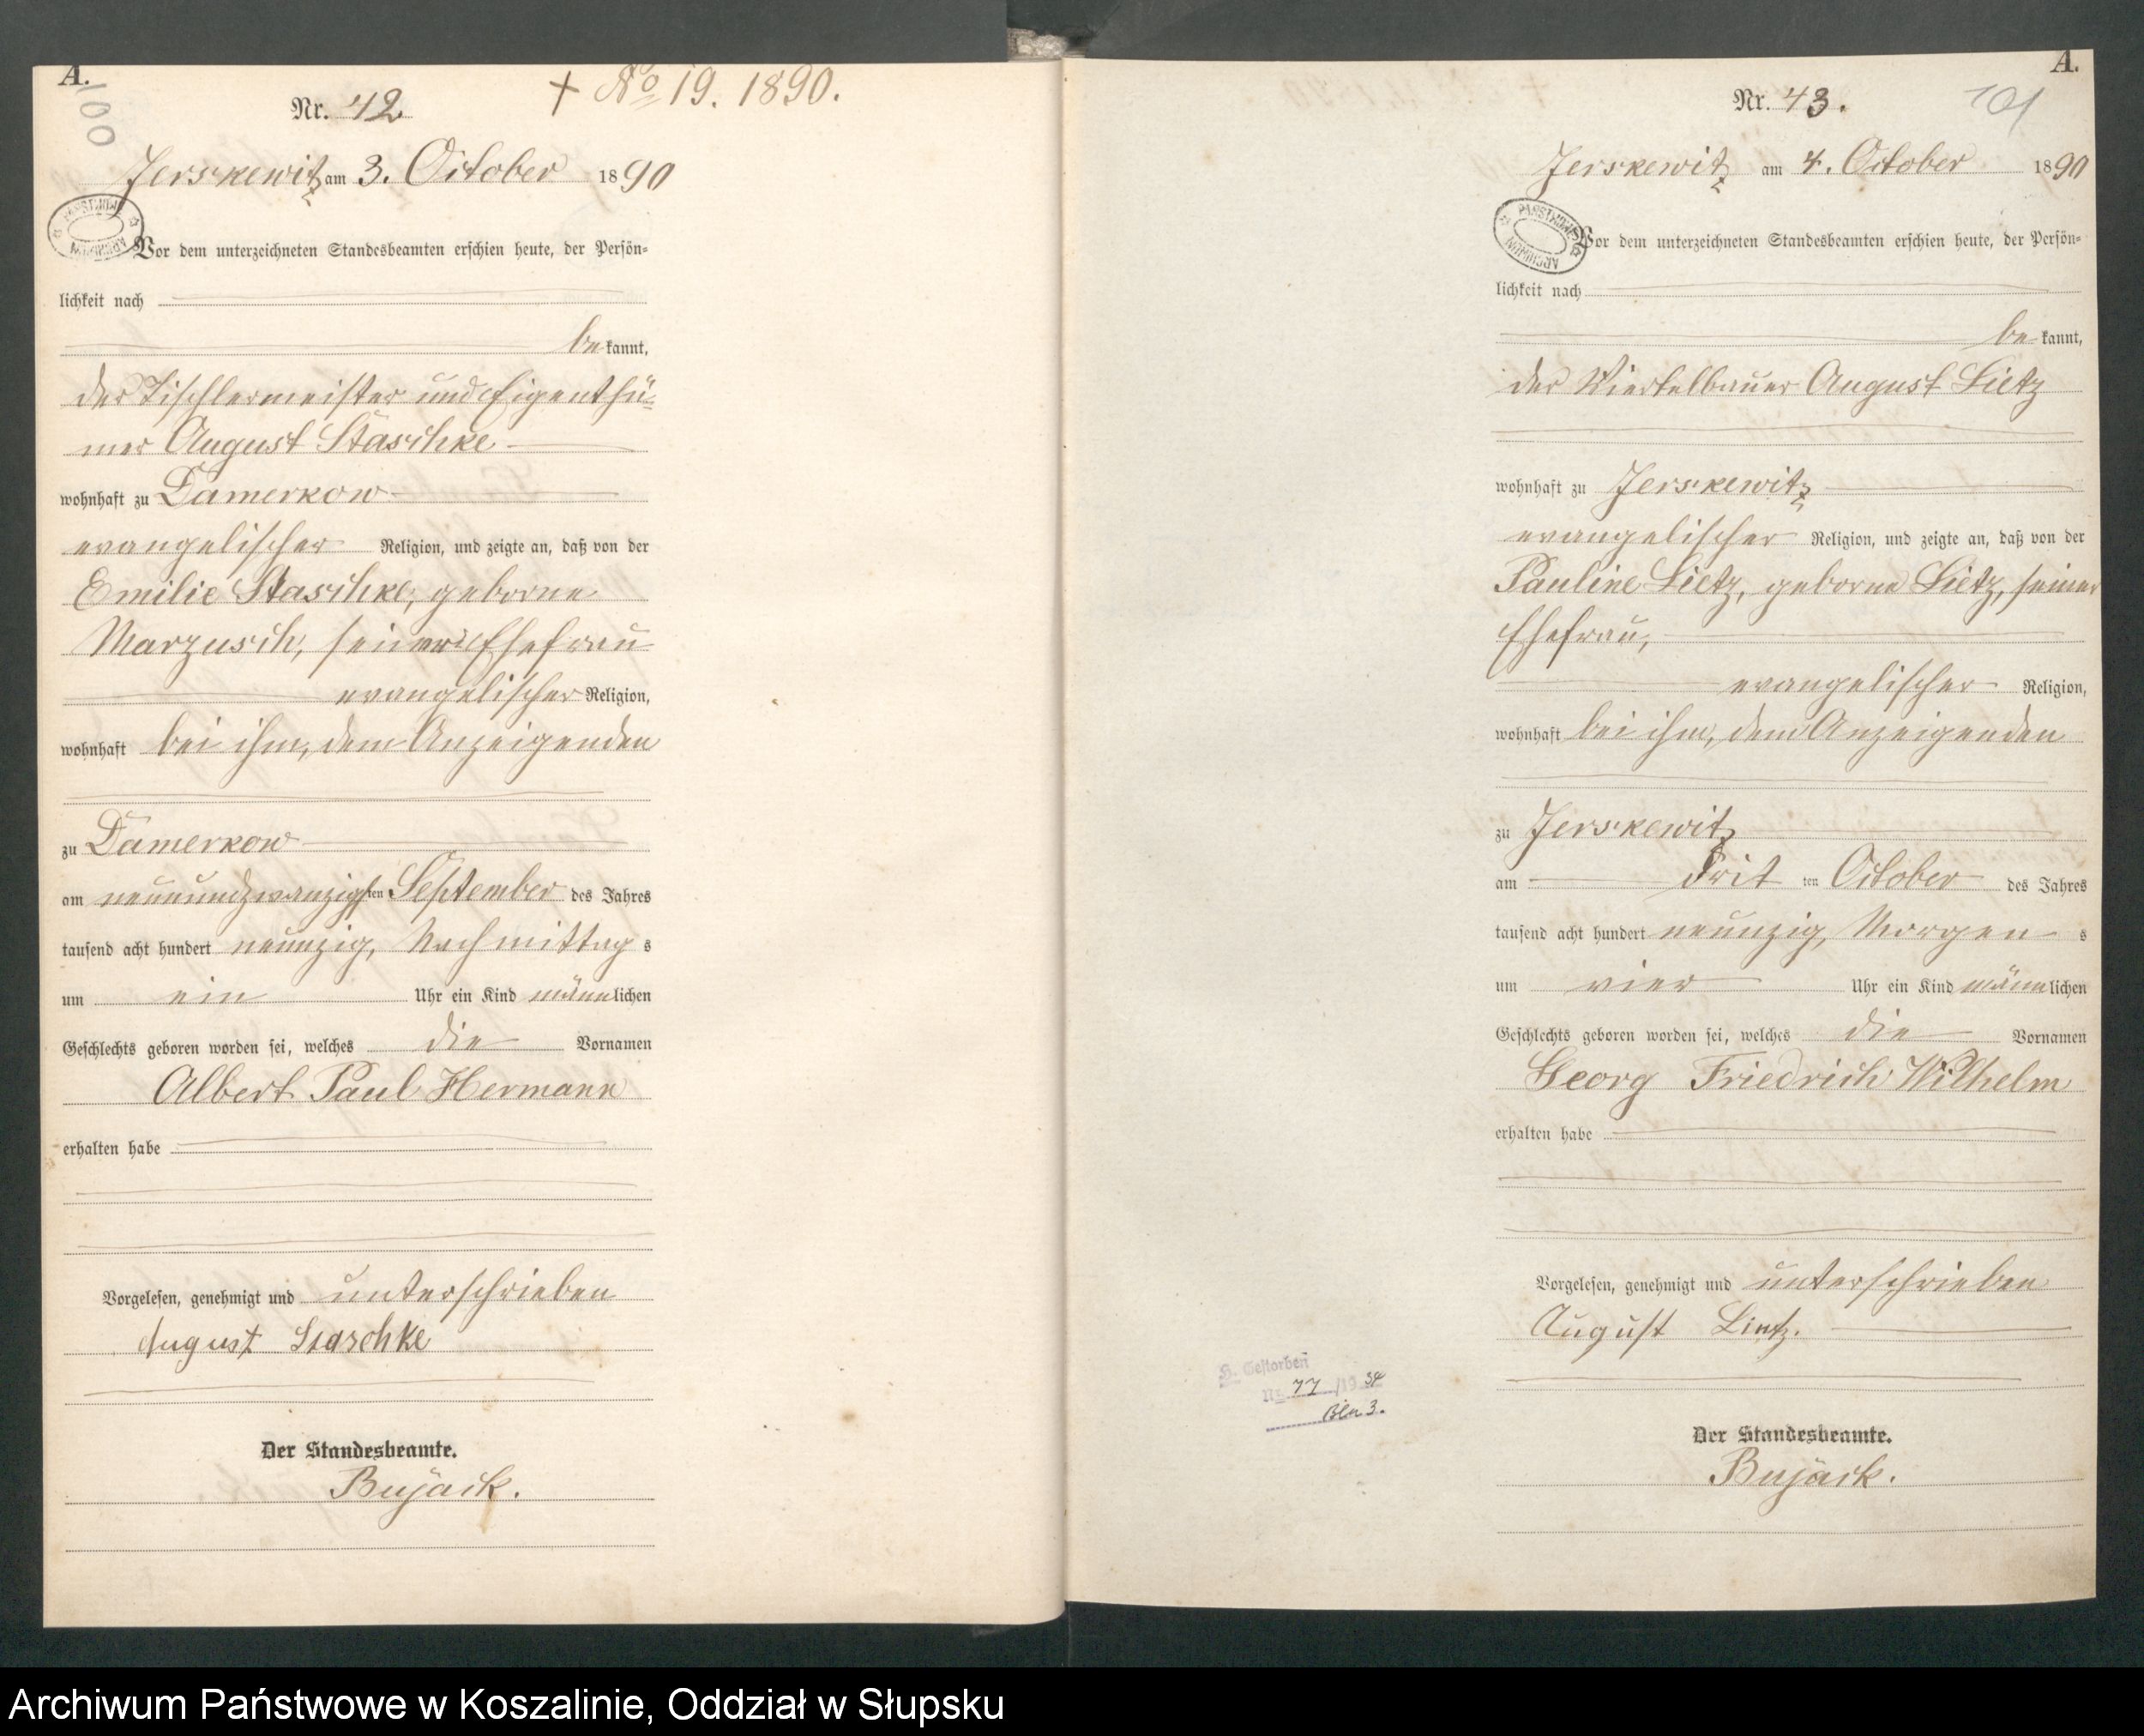 A.
100
Nr. 42.
+ No 19. 1890.
Jerskewitz am 3. October 1890
Vor dem unterzeichneten Standesbeamten erschien heute, der Persön-
lichkeit nach
bekannt,
der Tischlermeister und Eigenthü-
mer August Staschke
wohnhaft zu Damerkow
evangelischer Religion, und zeigte an, daß von der
Emilie Staschke, geborne
Marzusch, seiner Ehefrau
evangelischer Religion,
wohnhaft bei ihm, dem Anzeigenden
zu Damerkow
am neunundzwanzigsten September des Jahres
tausend acht hundert neunzig, Nachmittags
um ein Uhr ein Kind männlichen
Geschlechts geboren worden sei, welches die Vornamen
Albert Paul Hermann
erhalten habe
Vorgelesen, genehmigt und unterschrieben
August Staschke
Der Standesbeamte.
Bujack.
A.
Nr. 43.
101
Jerskewitz am 4. October 1890
Vor dem unterzeichneten Standesbeamten erschien heute, der Persön-
lichkeit nach
bekannt,
der Viertelbauer August Lietz
wohnhaft zu Jerskewitz
evangelischer Religion, und zeigte an, daß von der
Pauline Lietz, geborne Lietz, seiner
Ehefrau,
evangelischer Religion,
wohnhaft bei ihm, dem Anzeigenden
zu Jerskewitz
am dritten October des Jahres
tausend acht hundert neunzig, Morgens
um vier Uhr ein Kind männlichen
Geschlechts geboren worden sei, welches die Vornamen
Georg Friedrich Wilhelm
erhalten habe
Vorgelesen, genehmigt und unterschrieben
August Lietz.
Gestorben
Nr. 77/1934
Bln 3.
Der Standesbeamte.
Bujack.
Archiwum Państwowe w Koszalinie, Oddział w Słupsku